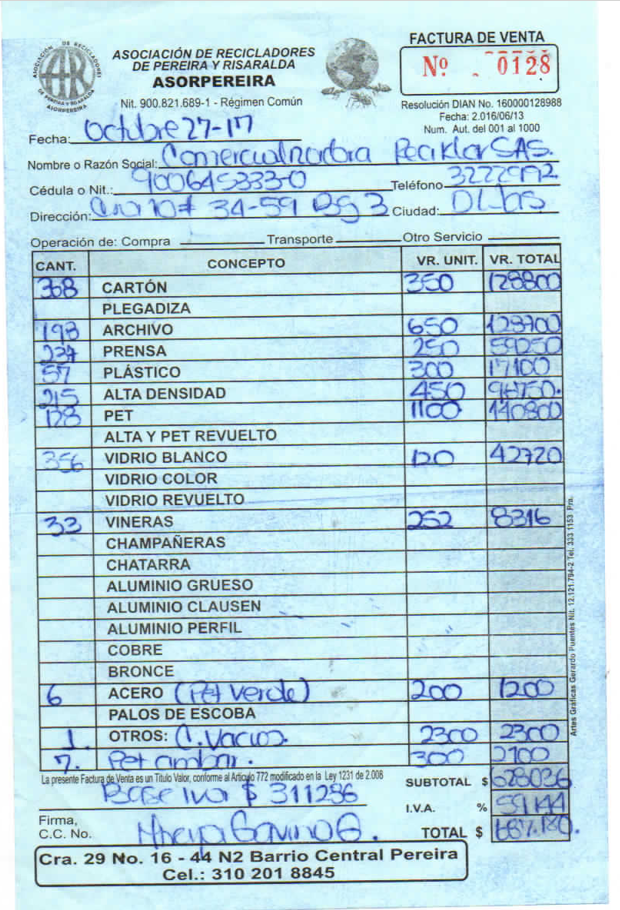 ASOCIACIÓN DE RECICLADORES
DE PEREIRA Y RISARALDA
ASORPEREIRA
Nit. 900.821.689-1 - Régimen Común
FACTURA DE VENTA
Nº 0128
Resolución DIAN No. 160000128988
Fecha: 2.016/06/13
Num. Aut. del 001 al 1000
Fecha: Octubre 27-17
Nombre o Razón Social: Comercializadora Reciklar SAS.
Cédula o Nit.: 900645333-0 Teléfono
Dirección: Cra 10 # 34-59 Bg 3 Ciudad:
Operación de: Compra Transporte Otro Servicio
CANT. CONCEPTO VR. UNIT. VR. TOTAL
368 CARTÓN 350 128800
PLEGADIZA
198 ARCHIVO 650 128700
237 PRENSA 250 59250
57 PLÁSTICO 300 17100
215 ALTA DENSIDAD 450 96750.
128 PET 1100 140800
ALTA Y PET REVUELTO
356 VIDRIO BLANCO 120 42720
VIDRIO COLOR
VIDRIO REVUELTO
33 VINERAS 252 8316
CHAMPAÑERAS
CHATARRA
ALUMINIO GRUESO
ALUMINIO CLAUSEN
ALUMINIO PERFIL
COBRE
BRONCE
6 ACERO (Pet verde) 200 1200
PALOS DE ESCOBA
1. OTROS: C. Vacios. 2300 2300
7. Pet ambar. 300 2100
La presente Factura de Venta es un Titulo Valor, conforme al Articulo 772 modificado en la Ley 1231 de 2.008
SUBTOTAL $ 628036
Base Iva $ 311286
I.V.A. % 59144
Firma,
C.C. No.
TOTAL $ 687.180.
Cra. 29 No. 16 - 44 N2 Barrio Central Pereira
Cel.: 310 201 8845
Artes Gráficas Gerardo Puentes Nit. 12.121.794-2 Tel. 333 1153 Pra.